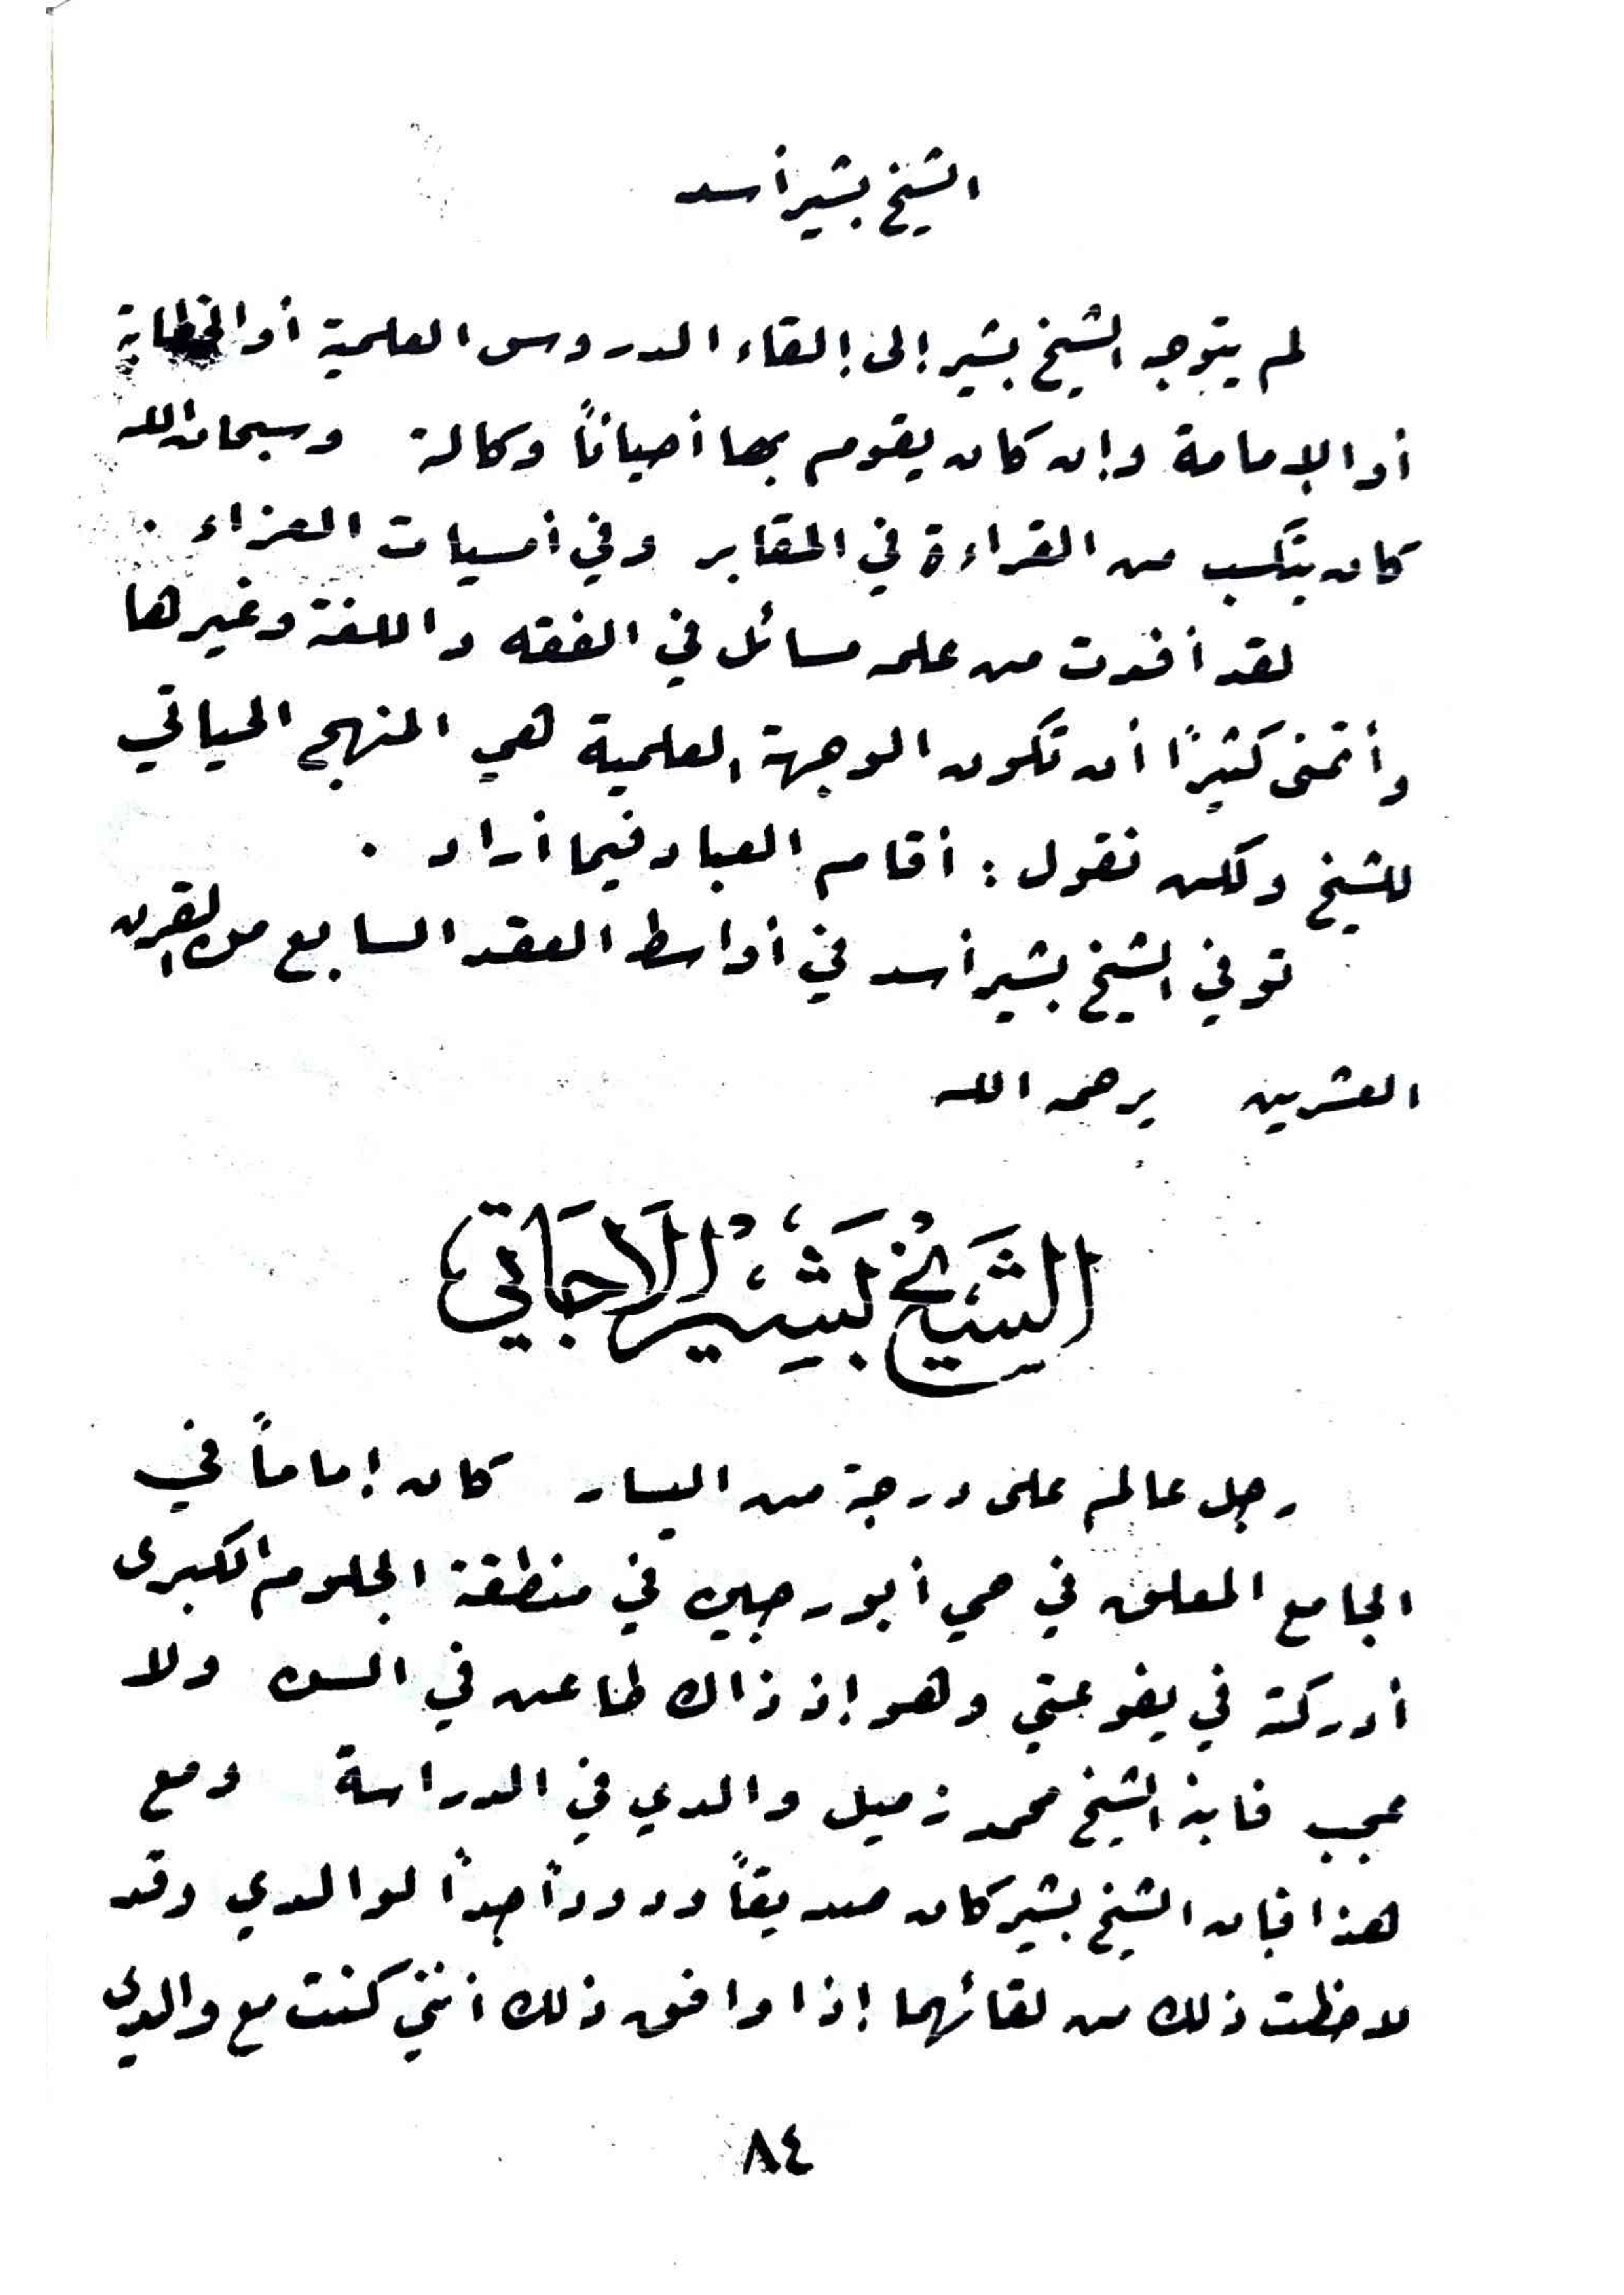 الشيخ بشير أسد
لم يتوجه الشيخ بشير إلى إلقاء الدروس العلمية أو الخطابة
أو الإمامة وإن كان يقوم بها أحياناً وكالة وسبحان الله
كان يتكسب من القراءة في المقابر وفي أمسيات العزاء .
لقد أفدت من علمه مسائل في الفقه واللغة وغيرها
وأتمنى كثيرًا أن تكون الوجهة العلمية هي المنهج الحياتي
للشيخ ولكن نقول : أقام العباد فيما أراد .
توفي الشيخ بشير أسد في أواسط العقد السابع من القرن
العشرين يرحمه الله
الشَّيْخُ بَشِيْرُ الَاجَاتي
رجل عالم على درجة من اليسار كان إماماً في
الجامع المعلق في حي أبو رجين في منطقة الجلوم الكبرى
أدركته في يفوعتي وهو إذ ذاك طاعن في السن ولا
عجب فابنه الشيخ محمد زميل والدي في الدراسة ومع
هذا فإن الشيخ بشير كان صديقاً ودوداً جداً لوالدي وقد
لاحظت ذلك من لقائهما إذا وافق ذلك أنني كنت مع والدي
٨٤